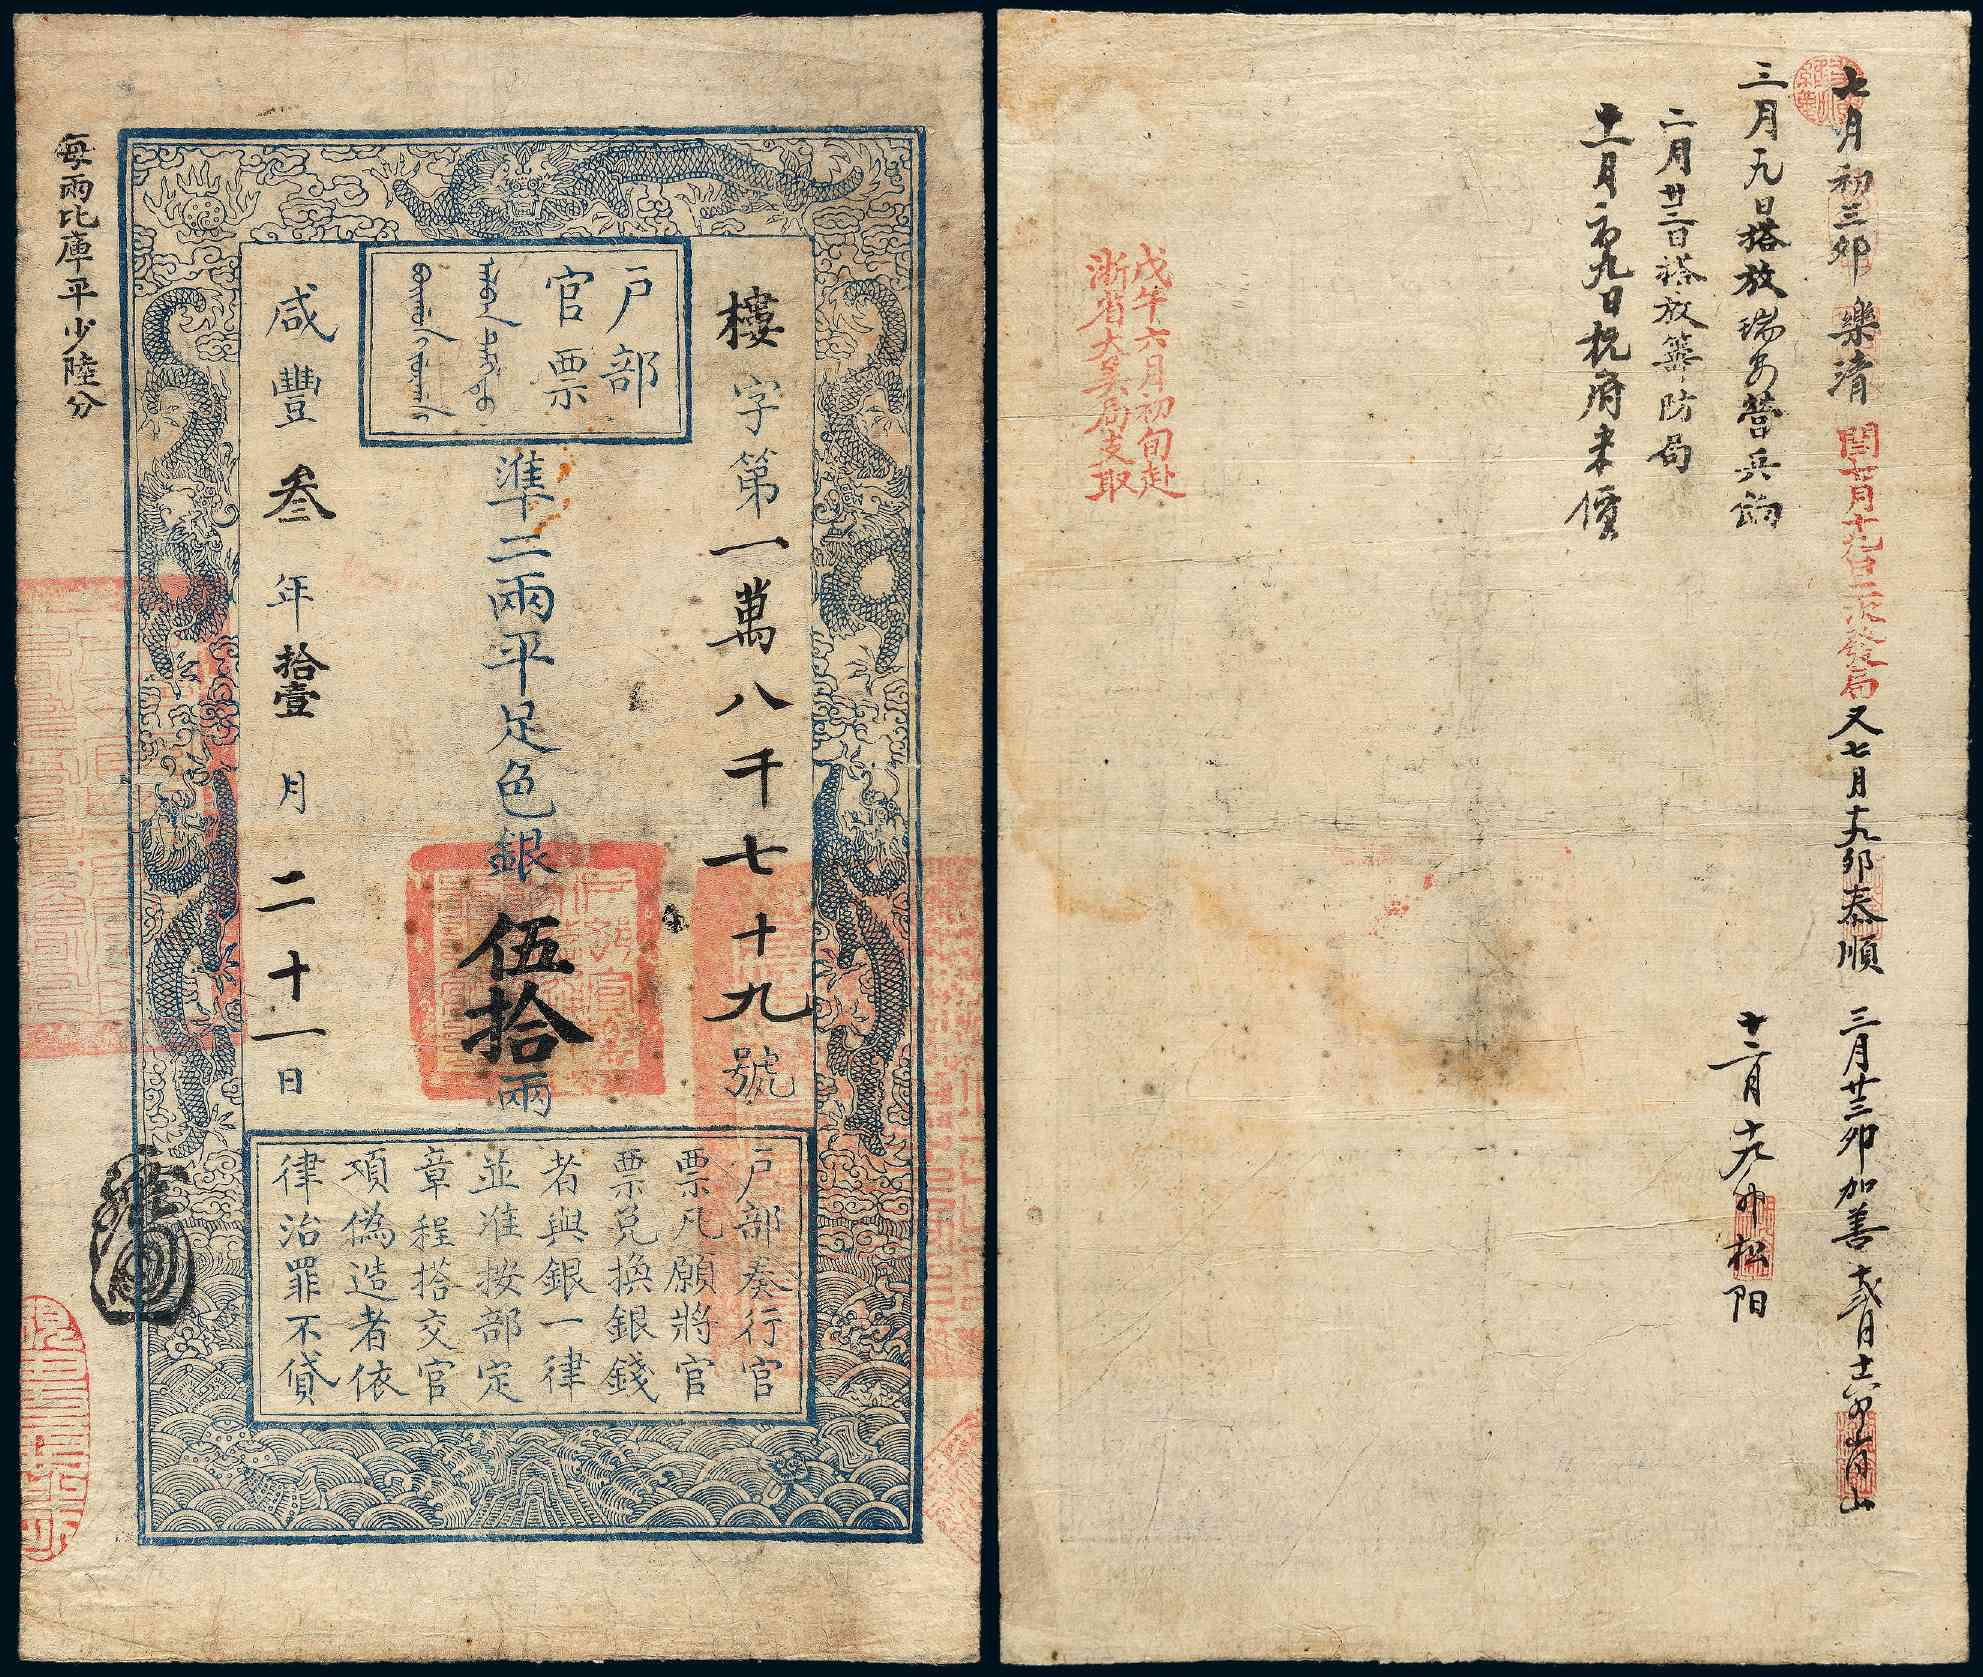 户部
官票
樓字第一萬八千七十九號
準二兩平足色銀伍拾兩
咸豐叁年拾壹月二十一日
每兩比庫平少陸分
户部奏行官
票凡願將官
票兑換銀錢
者與銀一律
並准按部定
章程搭交官
項偽造者依
律治罪不貸
七月初三卯樂清
閏七月十九日二次發局
又七月十九卯泰順
三月廿三卯加善
三月九日搭放瑞安營兵餉
十二月十九卯松阳
二月廿三日搭放籌防局
十一月初九日杭府米價
戊午六月初旬赴
浙省大美局支取